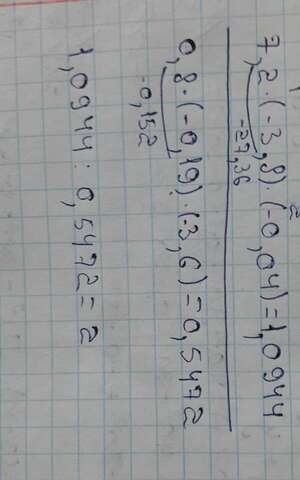 7,2·(-3,8)·(-0,04)=1,0944
-27,36
0,8·(-0,19)·(-3,6)=0,5472
-0,152
1,0944:0,5472=2